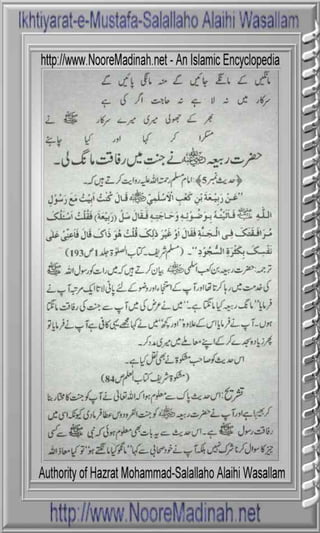 Ikhtiyarat-e-Mustafa-Salallaho Alaihi Wasallam
http://www.NooreMadinah.net - An Islamic Encyclopedia
مانگیں گے مانگے جائیں گے منہ مانگی پائیں گے
سرکار میں نہ لا ہے نہ حاجت اگر کی ہے
بھر کے جھولی میری میرے سرکار ﷺ نے
مسکرا کر کہا اور کیا چاہئے
حضرت ربیعہ ﷺ نے جنت میں رفاقت مانگ لی۔
﴿حدیث نمبر 5﴾: امام مسلم رحمتہ اللہ علیہ روایت کرتے ہیں کہ۔
"عَنْ رَبِيْعَةَ بْنِ كَعْبِ الْأَسْلَمِيِّ قَالَ كُنْتُ أَبِيْتُ مَعَ رَسُوْلِ
اللهِ ﷺ فَأَتَيْتُهُ بِوَضُوْئِهِ وَحَاجَتِهِ فَقَالَ سَلْ (رَبِيْعَةَ) فَقُلْتُ أَسْئَلُكَ
مُرَافَقَتَكَ فِي الْجَنَّةِ فَقَالَ أَوَ غَيْرَ ذٰلِكَ قُلْتُ هُوَ ذَاكَ قَالَ فَأَعِنِّيْ عَلٰى
نَفْسِكَ بِكَثْرَةِ السُّجُوْدِ"۔ (مسلم شریف۔ کتاب الصلوٰۃ جلد 1 ص 193)
ترجمہ: حضرت ربیعہ بن کعب اسلمی بیان کرتے ہیں کہ میں رات کو رسول اللہ ﷺ
کی خدمت میں رہا کرتا تھا اور آپ کے استنجاء اور وضو کے لئے پانی لاتا ایک مرتبہ آپ نے
فرمایا "مانگ ربیعہ کیا مانگتا ہے۔" میں نے عرض کی میں آپ سے جنت کی رفاقت مانگتا
ہوں۔ آپ نے فرمایا اس کے علاوہ "اور کچھ" میں نے کہا مجھے یہی کافی ہے آپ نے فرمایا تو
پھر زیادہ سجدے کر کے اپنے معاملے میں میری مدد کر۔
اس حدیث کو صاحب مشکوٰۃ نے بھی نقل کیا ہے۔
(مشکوٰۃ شریف کتاب ص 84)
تشریح: اس حدیث پاک سے معلوم ہوا کہ اللہ تعالیٰ نے آپ کو جنت کا مختار بنا
اور آپ نے حضرت ربیعہ کو جنت الفردوس عطا فرما دی کیونکہ اسی میں
رفاقت رسول ﷺ ہے۔ اس حدیث سے یہ بات بھی معلوم ہوئی کہ نبی ﷺ سے کسی
چیز کا سوال کرنا شرک نہیں بلکہ آپ نے خود صحابی سے کہا "مانگو کیا مانگتے ہو" تو کیا معاذ اللہ
Authority of Hazrat Mohammad-Salallaho Alaihi Wasallam
http://www.NooreMadinah.net